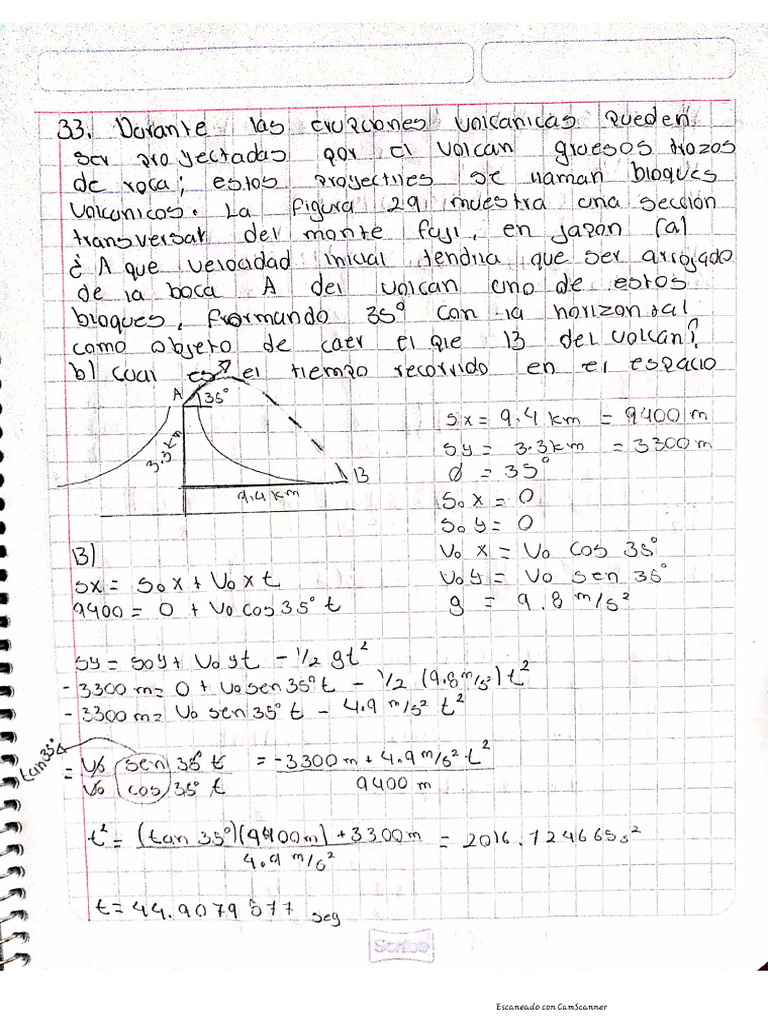 33. Durante las erupciones volcanicas pueden
ser proyectadas por el volcan gruesos trozos
de roca; estos proyectiles se llaman bloques
volcanicos. La figura 29 muestra una sección
transversar del monte fuji, en japon (a)
¿A que velocidad inicial tendria que ser arrojado
de la boca A del volcan uno de estos
bloques, formando 35° con la horizontal
como objeto de caer el que B del volcán?
b) cual es el tiempo recorrido en el espacio
A 35°
3.3 km
9.4 km
B
sx = 9.4 km = 9400 m
sy = 3.3 km = 3300 m
d = 35°
S₀x = 0
S₀y = 0
V₀x = V₀ cos 35°
V₀y = V₀ sen 35°
g = 9.8 m/s²
B)
sx = S₀x + V₀xt
9400 = 0 + V₀cos35° t
sy = S₀y + V₀yt - 1/2 gt²
-3300 m = 0 + V₀sen35°t - 1/2 (9.8 m/s²)t²
-3300 m = V₀ sen35° t - 4.9 m/s² t²
tan35° = V₀ sen 35° t / V₀ cos 35° t = -3300 m + 4.9 m/s² · t² / 9400 m
t² = (tan 35°)(9400m) + 3300m / 4.9 m/s² = 2016.724665s²
t = 44.9079577 seg
Scribe
Escaneado con CamScanner